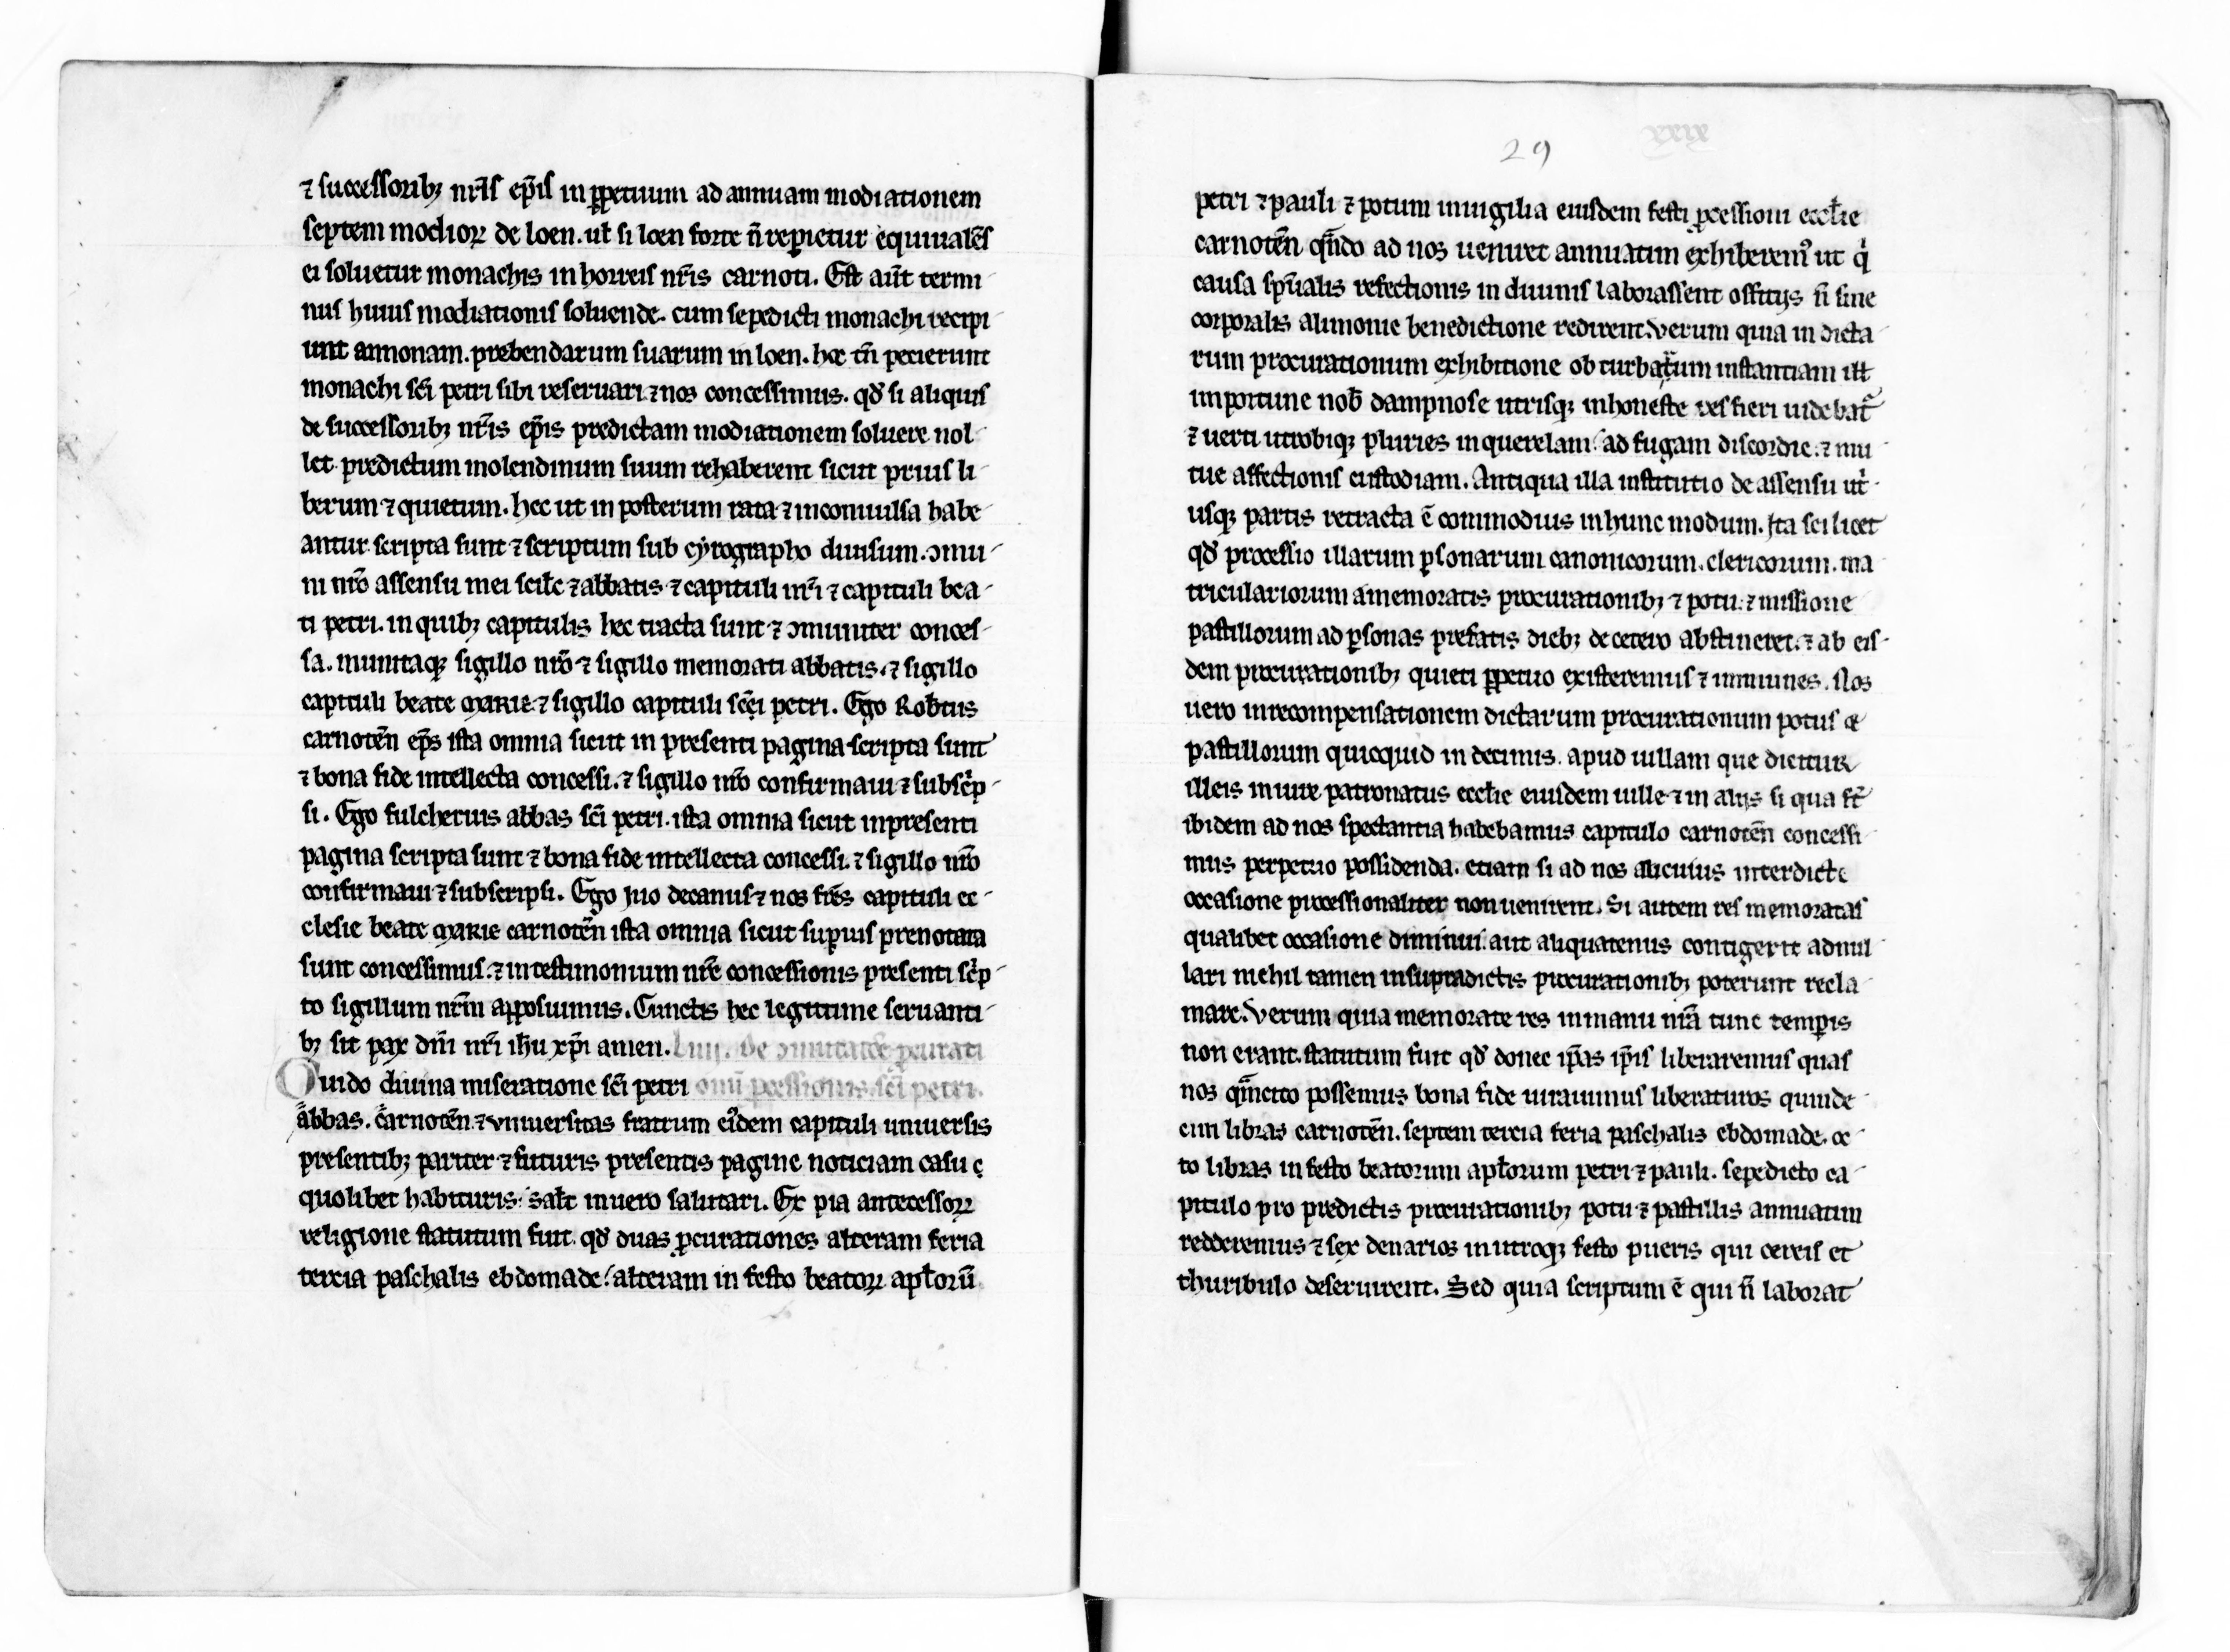 ⁊ successoribꝫ nr̄is ep̄is in ꝑpetuum ad annuam modiationem
septem modioꝝ de loen. ul̄ si loen forte n̄ reꝑietur equiualēs
ei soluetur monachis in horreis nr̄is carnoti. Est aūt termi-
nus huius modiationis soluende. cum sepedicti monachi recipi-
unt annonam. prebendarum suarum in loen. hoc tn̄ pecierunt
monachi sc̄i petri sibi reseruari ⁊ nos concessimus. qd̄ si aliquis
de successoribꝫ nr̄is ep̄is predictam modiationem soluere nol-
let predictum molendinum suum rehaberent sicut prius li-
berum ⁊ quietum. hec ut in posterum rata ⁊ inconuulsa habe-
antur scripta sunt ⁊ scriptum sub cyrographo diuisum. ꝯmu-
ni nr̄o assensu mei scil̄c ⁊ abbatis ⁊ capituli nr̄i ⁊ capituli bea-
ti petri. in quibꝫ capitulis hec tracta sunt ⁊ ꝯmuniter conces-
sa. munitaqꝫ sigillo nr̄o ⁊ sigillo memorati abbatis. ⁊ sigillo
capituli beate MARIE ⁊ sigillo capituli sc̄i petri. Ego Rob̄tus
carnotēn ep̄s ista omnia sicut in presenti pagina scripta sunt
⁊ bona fide intellecta concessi. ⁊ sigillo nr̄o confirmaui ⁊ subscͥp-
si. Ego fulcherius abbas sc̄i petri. ista omnia sicut in presenti
pagina scripta sunt ⁊ bona fide intellecta concessi. ⁊ sigillo nr̄o
confirmaui ⁊ subscripsi. Ego Iuo decanus ⁊ nos fr̄es capituli ec-
clesie beate MARIE carnotēn ista omnia sicut suꝑius prenotata
sunt concessimus. ⁊ in testimonium nr̄e concessionis presenti scͥp-
to sigillum nr̄m apposuimus. Cunctis hec legittime seruanti-
bꝫ sit pax dn̄i nr̄i ih̄u xp̄i amen. De ꝓcurati
Guido diuina miseratione sc̄i petri onū ꝓcessionis sc̄i petri.
abbas. carnotēn ⁊ vniuersitas fratrum eiꝰdem capituli uniuersis
presentibꝫ pariter ⁊ futuris presentis pagine noticiam casu
quolibet habituris. sal̄t in uero salutari. Ex pia antecessoꝝ
religione statutum fuit qd̄ duas ꝓcurationes alteram feria
tercia paschalis ebdomade. alteram in festo beatoꝝ apl̄orū
29
petri ⁊ pauli ⁊ potum in uigilia eiusdem festi ꝓcessioni eccl̄ie
carnotēn qn̄do ad nos ueniret annuatim exhiberemꝰ ut qͥ
causa sp̄ualis refectionis in diuinis laborassent offitijs n̄ sine
corporalis alimonie benedictione redirent. Verum quia in dicta-
rum procurationum exhibitione ob turbarum instantiam ill̄
importune nob̄ dampnose utrisqꝫ inhoneste res fieri uidebat᷑
⁊ uerti utrobiqꝫ pluries in querelam. ad fugam discordie. ⁊ mu-
tue affectionis custodiam. Antiqua illa institutio de assensu utͥ-
usqꝫ partis retracta ē commodius in hunc modum. Ita scilicet
qd̄ processio illarum ꝑsonarum canonicorum. clericorum. ma-
triculariorum a memoratis procurationibꝫ ⁊ potu. ⁊ missione
pastillorum ad ꝑsonas prefatis diebꝫ de cetero abstineret. ⁊ ab eis-
dem procurationibꝫ quieti ꝑpetuo existeremus ⁊ immunes. Nos
uero in recompensationem dictarum procurationum potus et
pastillorum quicquid in decimis. apud uillam que dicitur
illeis in iure patronatus eccl̄ie eiusdem uille ⁊ in alijs si qua st̄
ibidem ad nos spectantia habebamus capitulo carnotēn concessi-
mus perpetuo possidenda. etiam si ad nos alicuius interdicte
occasione processionaliter non uenirent. Si autem res memoratas
qualibet occasione diminui aut aliquatenus contigerit adnul-
lari nichil tamen in supradictis procurationibꝫ poterunt recla-
mare. Verum quia memorate res in manu nr̄a tunc temꝑis
non erant. statutum fuit qd̄ donec ip̄as ip̄is liberaremus quas
nos qm̄cito possemus bona fide iurauimus liberaturos quinde-
cim libras carnotēn. septem tercia feria paschalis ebdomade. oc-
to libras in festo beatorum apl̄orum petri ⁊ pauli. sepedicto ca-
pitulo pro predictis procurationibꝫ potu ⁊ pastillis annuatim
redderemus ⁊ sex denarios in utroqꝫ festo pueris qui cereis et
thuribulo deseruirent. Sed quia scriptum ē qui n̄ laborat